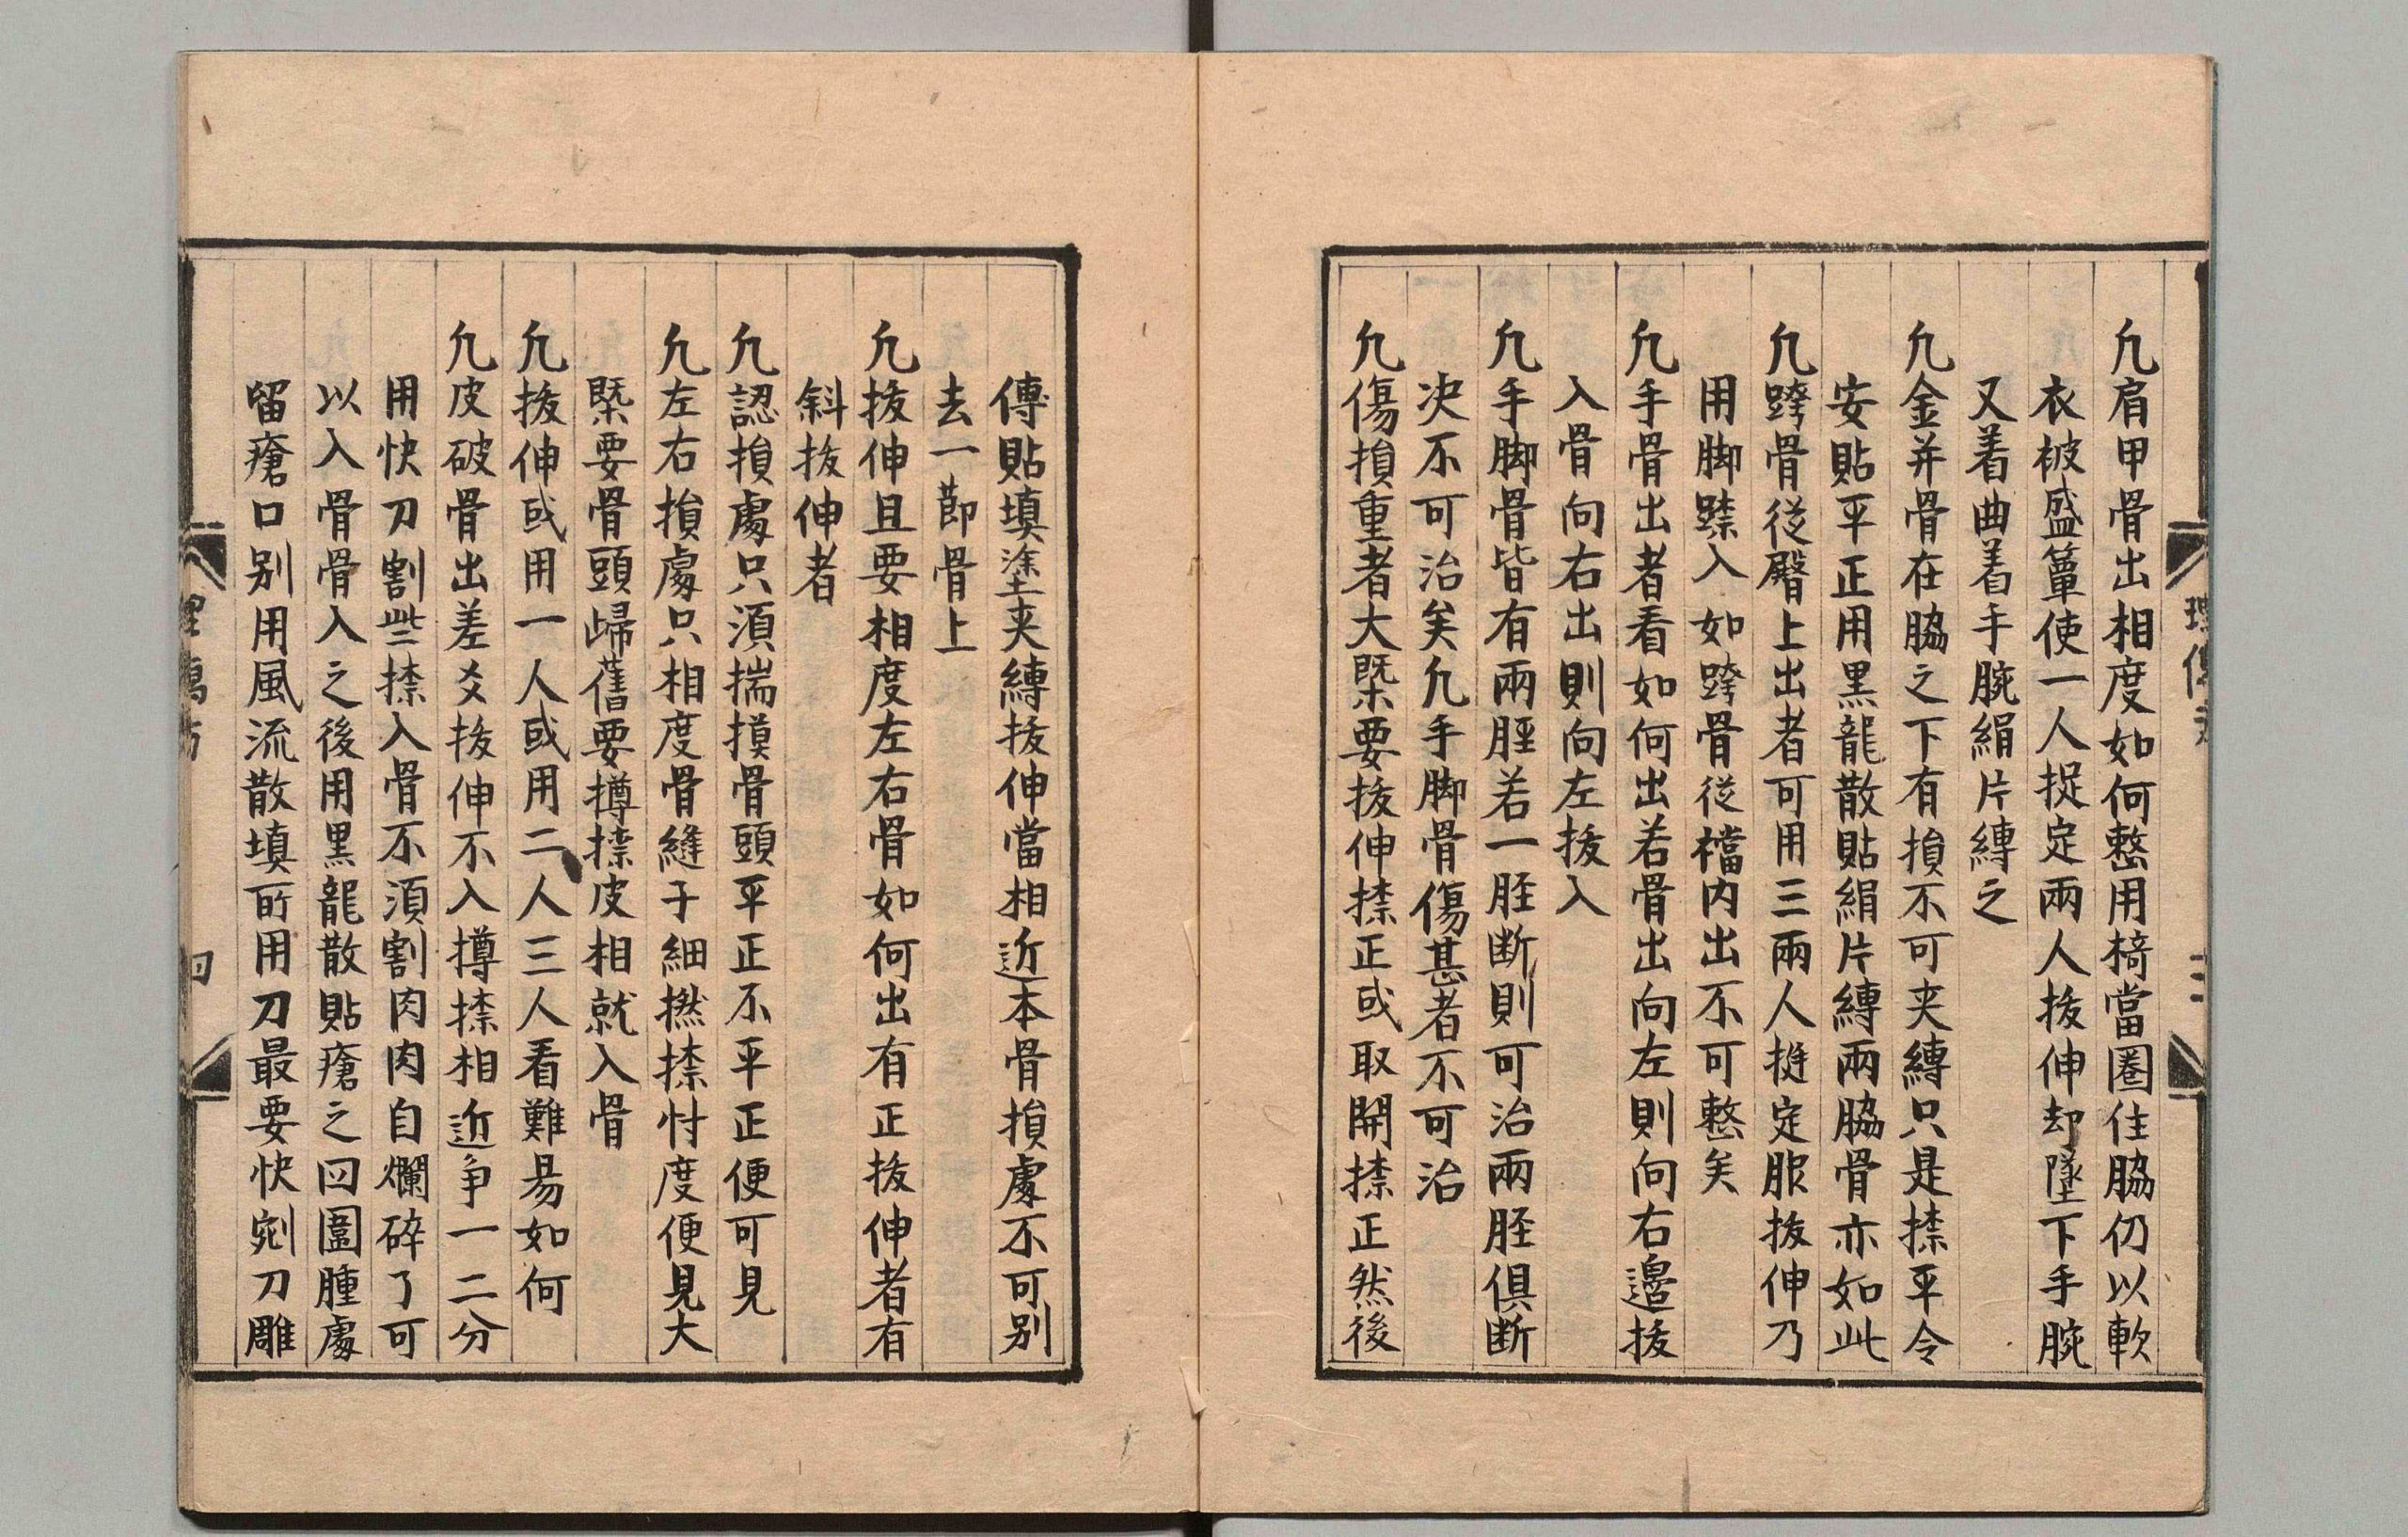 凢肩甲骨出相度如何整用椅當圈住脇仍以軟
衣被盛簟使一人捉定兩人拔伸却墜下手腕
又着曲着手腕絹片縳之
凢金井骨在脇之下有損不可夹縳只是捺平令
安貼平正用黒龍散貼絹片縳兩脇骨亦如此
凢跨骨從臀上出者可用三兩人挻定腿拔伸乃
用脚踩入如跨骨從襠内出不可整矣
凢手骨出者看如何出若骨出向左則向右邉拔
入骨向右出則向左拔入
凢手脚骨皆有兩脛若一胫断則可治兩胫俱断
决不可治矣凢手脚骨傷甚者不可治
凢傷損重者大槩要拔伸捺正或取開捺正然後
傅貼填塗夹縳拔伸當相近本骨損處不可别
去一莭骨上
凢拔伸且要相度左右骨如何出有正拔伸者有
斜拔伸者
凢認損處只湏揣摸骨頭平正不平正便可見
凢左右損處只相度骨縫子細撚捺忖度便見大
槩要骨頭歸舊要撙捺皮相就入骨
凢拔伸或用一人或用二人三人看難易如何
凢皮破骨出差爻拔伸不入撙捺相近争一二分
用快刀割些捺入骨不湏割肉肉自爛碎了可
以入骨骨入之後用黒龍散貼瘡之四圍腫處
留瘡口别用風流散填所用刀最要快剜刀雕